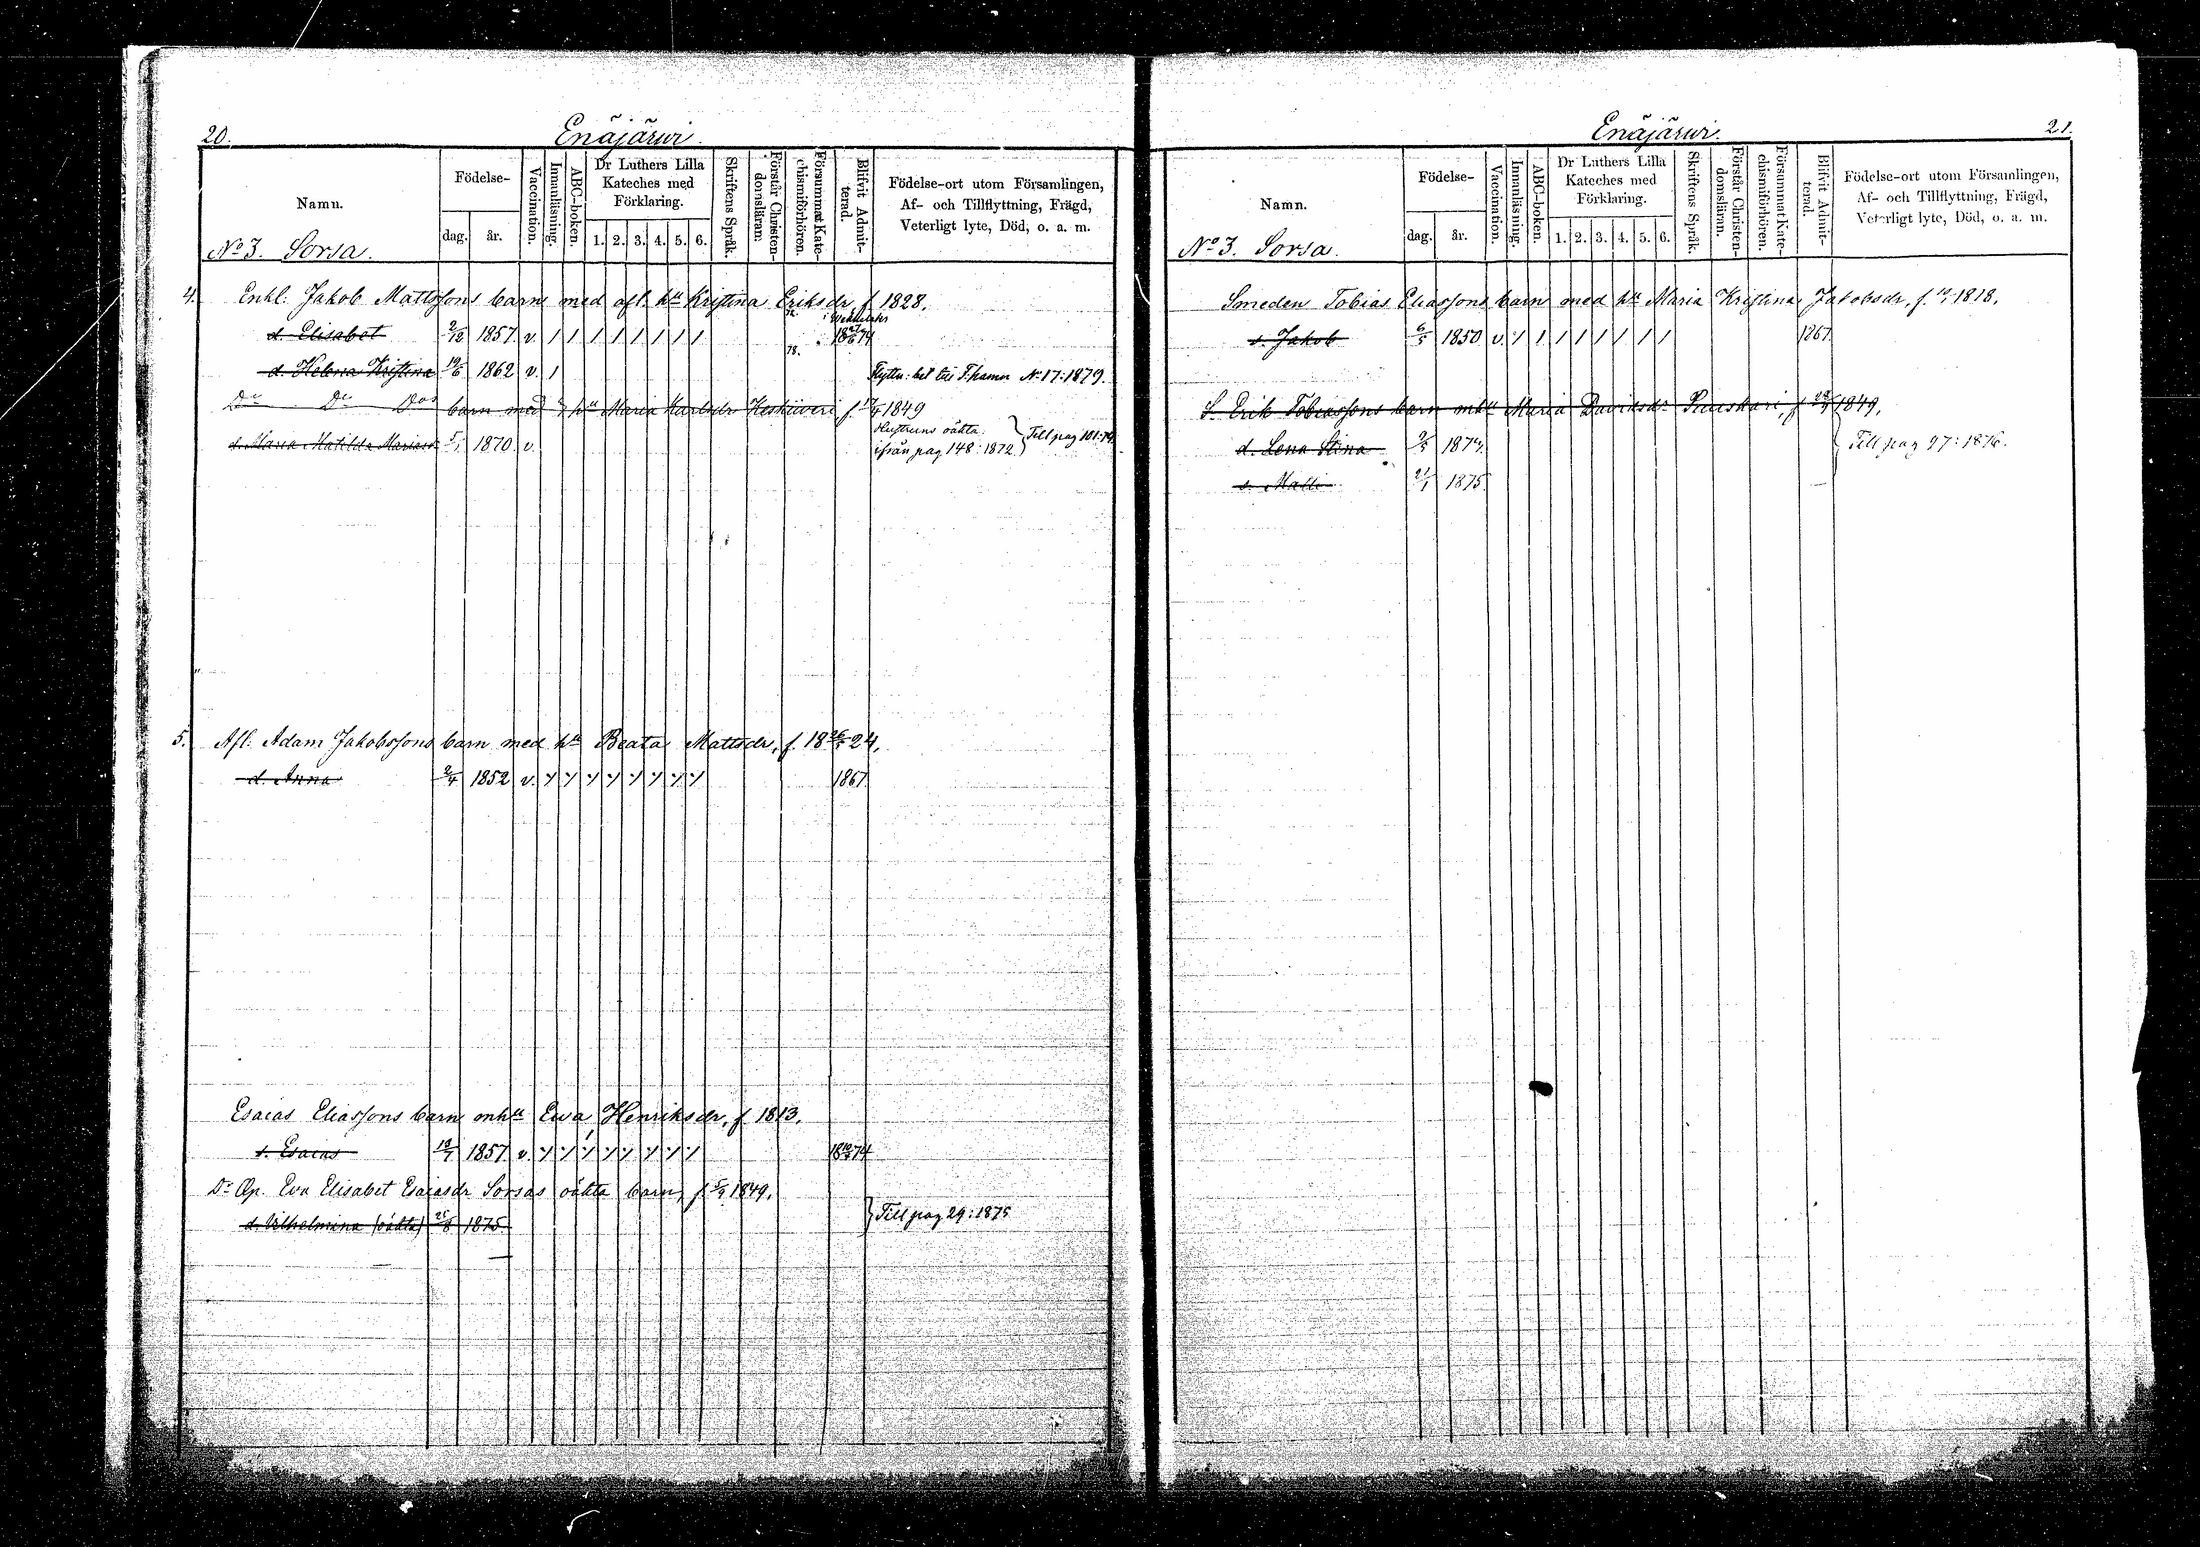 20.
Enäjärwi.
Namn.
Födelse-
dag.
år.
Vaccination.
Innanläsning.
ABC-boken.
Dr Luthers Lilla
Kateches med
Förklaring.
1. 2. 3. 4. 5. 6.
Skriftens Språk.
Förstår Christen-
domsläran.
Försummat Kate-
chismiförhören.
Blifvit Admit-
terad.
Födelse-ort utom Församlingen,
Af- och Tillflyttning, Frägd,
Veterligt lyte, Död, o. a. m.
No 3. Sorsa.
4. Enkl. Jakob Matssons barn med afl. hu Kristina Eriksdr f. 1828.
d. Elisabet 2/12 1857 v. / / / / / / / /
78.
d. Helena Kristina 19/6 1862 v. / Flyttn. bet. till F:hamn No 17: 1879.
Do Do Dos barn med hu Maria Karlsdr f 17/4 1849
d. Maria Matilda Mariasdr 5/1 1870 v. Hustruns oäkta
ifrån pag 148: 1872. } Till pag 101:74
5. Afl. Adam Jakobssons barn med hu Beata Mattsdr, f. 18 26/5 24.
d. Anna 2/4 1852 v. 1867
Esaias Eliassons barn mhu Ewa Henriksdr, f 1813.
s. Esaias 19/7 1857 v. 74
Do Qp. Eva Elisabet Esaiasdr Sorsas oäkta barn, f 5/9 1849.
d. Vilhelmina (oäkta) 25/8 1875. } Till pag 29: 1875
21.
Enäjärwi.
Namn.
Födelse-
dag.
år.
Vaccination.
Innanläsning.
ABC-boken.
Dr Luthers Lilla
Kateches med
Förklaring.
1. 2. 3. 4. 5. 6.
Skriftens Språk.
Förstår Christen-
domsläran.
Försummat Kate-
chismiförhören.
Blifvit Admit-
terad.
Födelse-ort utom Församlingen,
Af- och Tillflyttning, Frägd,
Veterligt lyte, Död, o. a. m.
No 3. Sorsa.
Smeden Tobias Eliassons barn med hu Maria Kristina Jakobsdr, f. 1818.
s. Jakob 6/5 1850 v. / / / / / / / / 1867
S. Erik Tobiassons barn mhu Maria Daviksdr f 1849.
d. Lena Stina 9/5 1874. } Till pag 97: 1876.
s. Matti 21/1 1875.